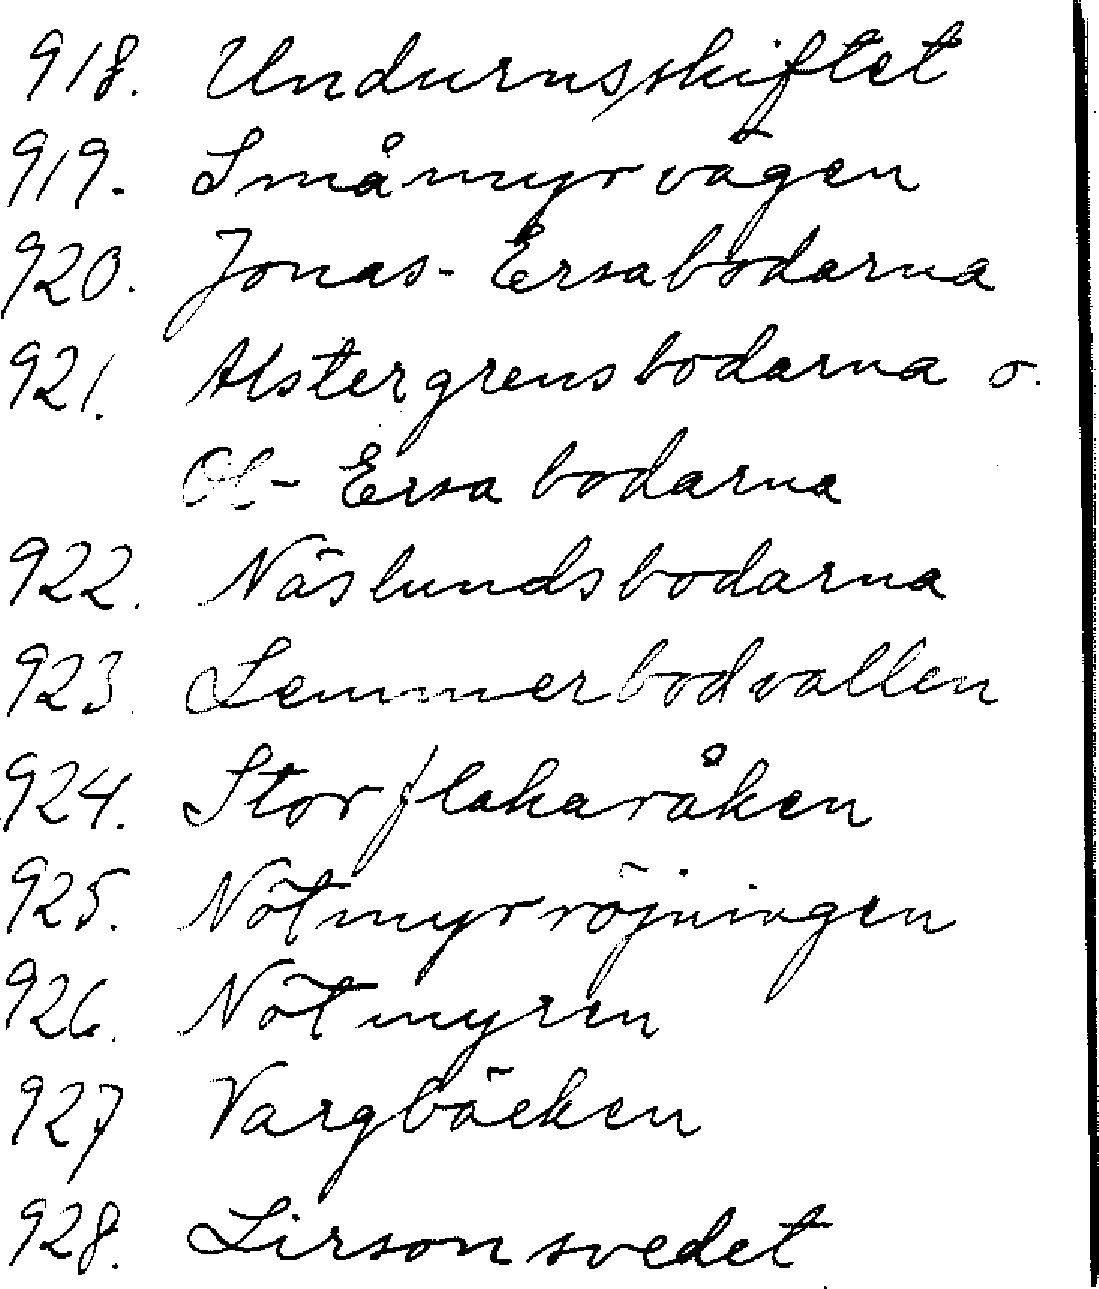 918. Undurnsskiftet
919. Småmyrvägen
920. Jonas-Ersabodarna
921. Alstergrensbodarna o.
Ol-Ersabodarna
922. Näslundsbodarna
923. Lemmerbodvallen
924. Storflakaråken
925. Nötmyrröjningen
926. Nötmyren
927 Vargbäcken
928. Lirsonsvedet